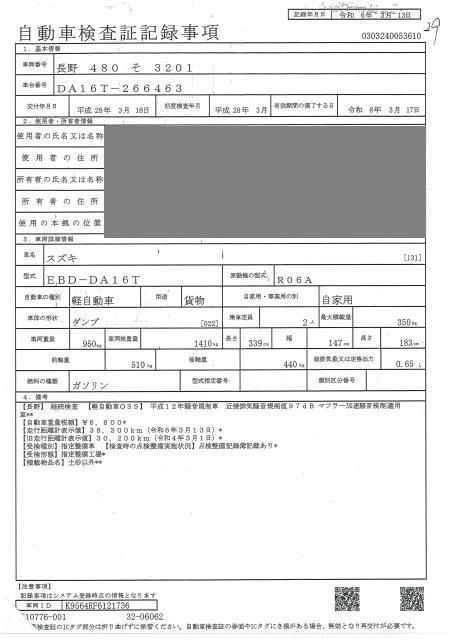 記録年月日 令和 6年 3月13日
29
自動車検査証記録事項 0303240053610
1. 基本情報
車両番号 長野 480 そ 3201
車台番号 DA16T-266463
交付年月日 平成28年 3月 18日 初度検査年月 平成28年 3月 有効期間の満了する日 令和 8年 3月 17日
2. 使用者・所有者情報
使用者の氏名又は名称
使用者の住所
所有者の氏名又は名称
所有者の住所
使用の本拠の位置
3. 車両詳細情報
車名 スズキ [131]
型式 EBD-DA16T 原動機の型式 R06A
自動車の種別 軽自動車 用途 貨物 自家用・事業用の別 自家用
車体の形状 ダンプ [022] 乗車定員 2人 最大積載量 350kg
車両重量 950kg 車両総重量 1410kg 長さ 339cm 幅 147cm 高さ 183cm
前軸重 510kg 後軸重 440kg 総排気量又は定格出力 0.65 L
燃料の種類 ガソリン 型式指定番号 類別区分番号
4. 備考
【長野】 継続検査 【軽自動車OSS】 平成12年騒音規制車 近接排気騒音規制値97dB マフラー加速騒音規制適用
車**
【自動車重量税額】¥6,600*
【走行距離計表示値】38,300km (令和6年3月13日)*
【旧走行距離計表示値】30,200km (令和4年3月1日)*
【受検種別】指定整備車 【検査時の点検整備実施状況】点検整備記録簿記載あり*
【受検形態】指定整備工場*
【積載物品名】土砂以外**
【注意事項】
記録事項はシステム登録時点の情報となります
車両ID K9564RF6121736
10776-001 32-06062
検査証のICタグ部分は折り曲げずに保管してください。自動車検査証の券面やICタグにき損がある場合、無効となり再交付が必要です。